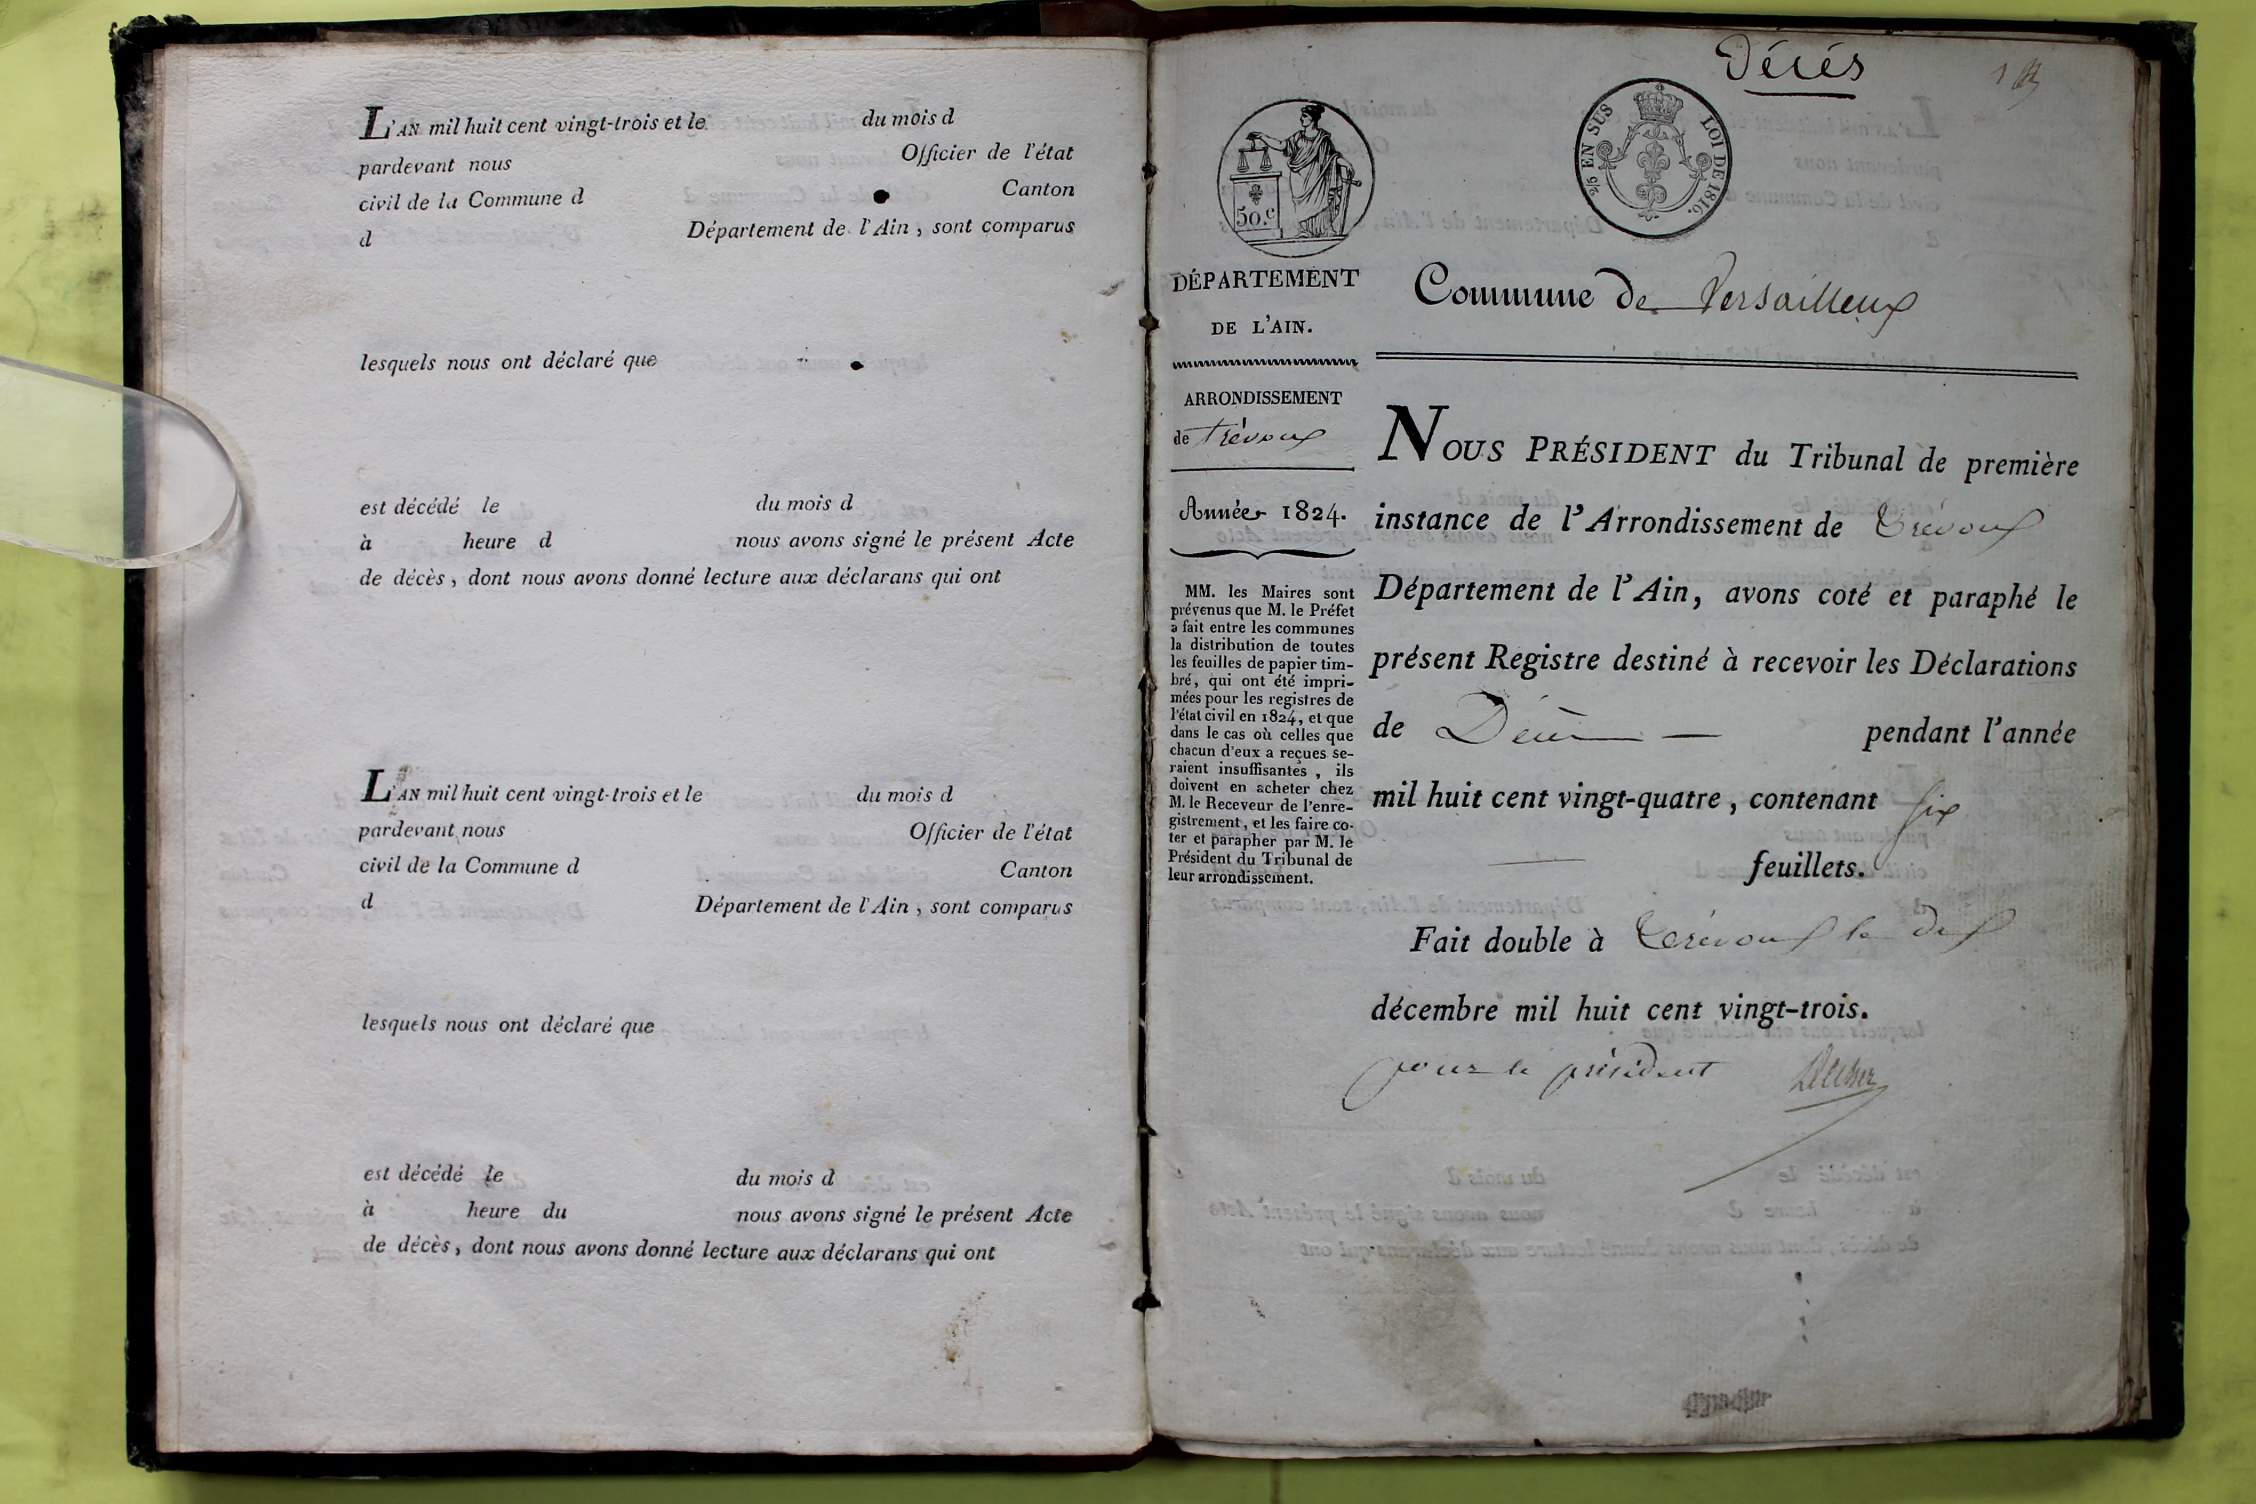 L'AN mil huit cent vingt-trois et le du mois d
pardevant nous Officier de l'état
civil de la Commune d Canton
d Département de l'Ain, sont comparus
lesquels nous ont déclaré que
est décédé le du mois d
à heure d nous avons signé le présent Acte
de décès, dont nous avons donné lecture aux déclarans qui ont
L'AN mil huit cent vingt-trois et le du mois d
pardevant nous Officier de l'état
civil de la Commune d Canton
d Département de l'Ain, sont comparus
lesquels nous ont déclaré que
est décédé le du mois d
à heure du nous avons signé le présent Acte
de décès, dont nous avons donné lecture aux déclarans qui ont
Décés
1
50.c
EN SUS LOI DE 1816.
DÉPARTEMENT
DE L'AIN.
ARRONDISSEMENT
de trévoux
Année 1824.
MM. les Maires sont
prévenus que M. le Préfet
a fait entre les communes
la distribution de toutes
les feuilles de papier tim-
bré, qui ont été impri-
mées pour les registres de
l'état civil en 1824, et que
dans le cas où celles que
chacun d'eux a reçues se-
raient insuffisantes, ils
doivent en acheter chez
M. le Receveur de l'enre-
gistrement, et les faire co-
ter et parapher par M. le
Président du Tribunal de
leur arrondissement.
Commune de Versailleux
NOUS PRÉSIDENT du Tribunal de première
instance de l'Arrondissement de Trévoux
Département de l'Ain, avons coté et paraphé le
présent Registre destiné à recevoir les Déclarations
de Décès pendant l'année
mil huit cent vingt-quatre, contenant six
feuillets.
Fait double à Trévoux le dix
décembre mil huit cent vingt-trois.
pour le président